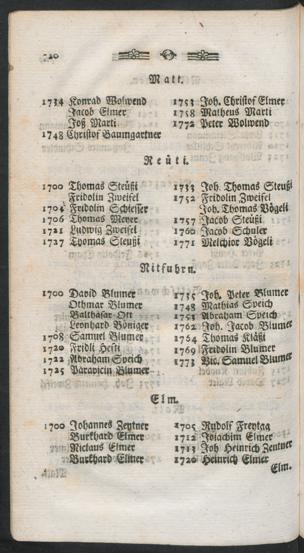 120
Matt.
1734 Konrad Wolwend
Jacob Elmer
Joß Marti
1748 Christof Baumgartner
1753 Joh. Christof Elmer
1758 Matheus Marti
1772 Peter Wolwend
Reüti.
1700 Thomas Steüßi
Fridolin Zweifel
1704 Fridolin Schiesser
1706 Thomas Meyer
1721 Ludwig Zweifel
1727 Thomas Steüßi
1733 Joh. Thomas Steüßi
1752 Fridolin Zweifel
Joh. Thomas Vögeli
1757 Jacob Steüßi
1760 Jacob Schuler
1771 Melchior Vögeli
Nitfuhrn.
1700 David Blumer
Othmar Blumer
Balthasar Ott
Leonhard Böniger
1708 Samuel Blumer
1720 Fridli Hefti
1722 Abraham Speich
1725 Paravicin Blumer
1735 Joh. Peter Blumer
1748 Mathias Speich
1751 Abraham Speich
1762 Joh. Jacob Blumer
1764 Thomas Kläßi
1769 Fridolin Blumer
1773 Vic. Samuel Blumer
Elm.
1700 Johannes Zentner
Burkhard Elmer
Niclaus Elmer
Burkhard Elmer
1705 Rudolf Freytag
1712 Joachim Elmer
1713 Joh Heinrich Zentner
1720 Heinrich Elmer
Elm.